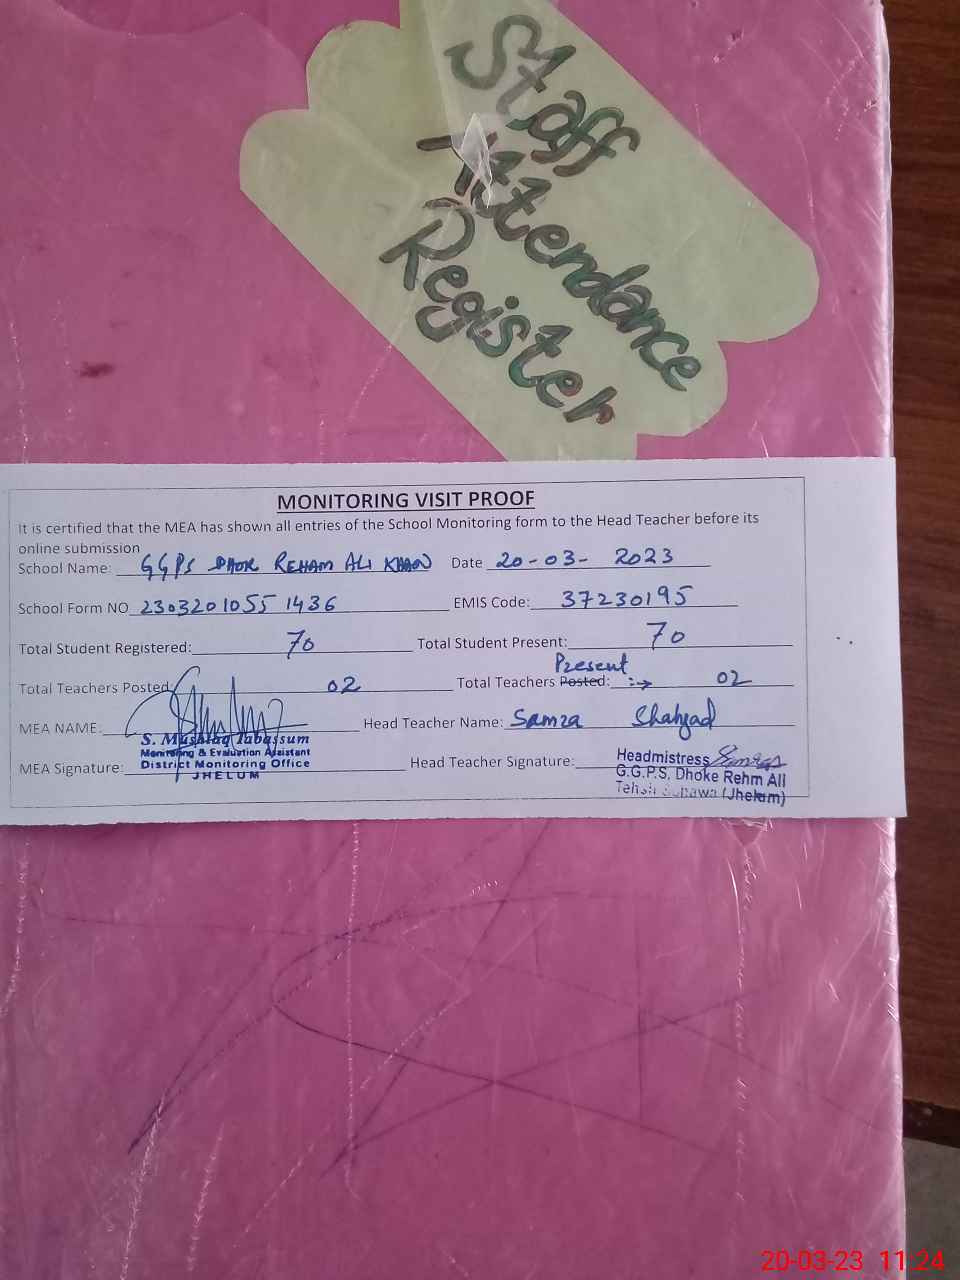 Staff
Attendance
Register
MONITORING VISIT PROOF
It is certified that the MEA has shown all entries of the School Monitoring form to the Head Teacher before its
online submission
School Name: GGPS DHOK REHAM ALI KHAN Date 20-03-2023
School Form NO 2303201055 1436 EMIS Code: 37230195
Total Student Registered: 70 Total Student Present: 70
Present
Total Teachers Posted: 02 Total Teachers Posted: :→ 02
MEA NAME: Head Teacher Name: Samza Shahzad
S. Mushtaq Tabassum
Monitoring & Evaluation Assistant
MEA Signature: District Monitoring Office Head Teacher Signature: Headmistress
JHELUM
G.G.P.S. Dhoke Rehm Ali
Tehsil Sohawa (Jhelum)
20-03-23 11:24